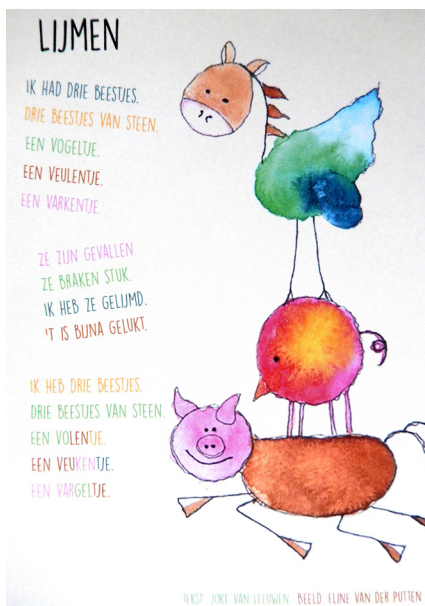 LIJMEN
IK HAD DRIE BEESTJES.
DRIE BEESTJES VAN STEEN.
EEN VOGELTJE.
EEN VEULENTJE.
EEN VARKENTJE.
ZE ZIJN GEVALLEN.
ZE BRAKEN STUK.
IK HEB ZE GELIJMD.
'T IS BIJNA GELUKT.
IK HEB DRIE BEESTJES.
DRIE BEESTJES VAN STEEN.
EEN VOLENTJE.
EEN VEUKENTJE.
EEN VARGELTJE.
TEKST: JOKE VAN LEEUWEN BEELD: ELINE VAN DER PUTTEN